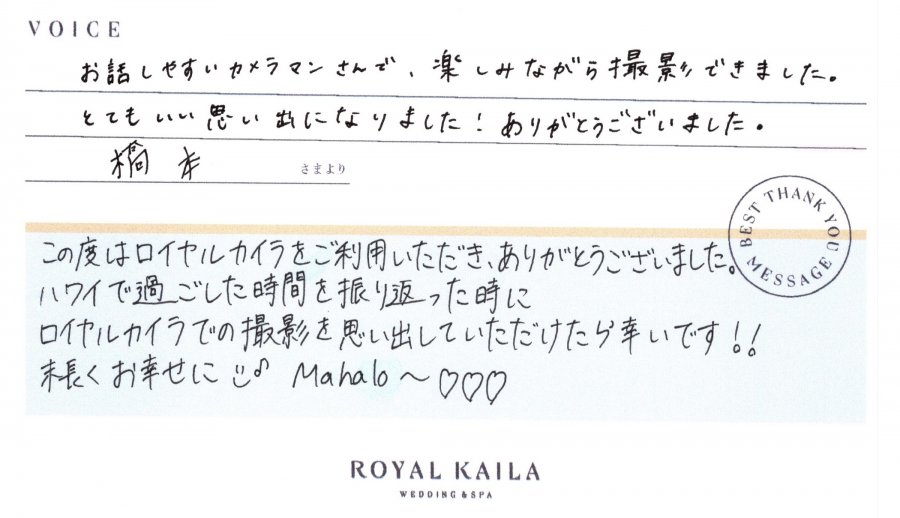 VOICE
お話しやすいカメラマンさんで、楽しみながら撮影できました。
とてもいい思い出になりました！ありがとうございました。
橋本 さまより
BEST THANK YOU MESSAGE
この度はロイヤルカイラをご利用いただき、ありがとうございました。
ハワイで過ごした時間を振り返った時に
ロイヤルカイラでの撮影を思い出していただけたら幸いです!!
末長くお幸せに Mahalo〜♡♡♡
ROYAL KAILA
WEDDING & SPA